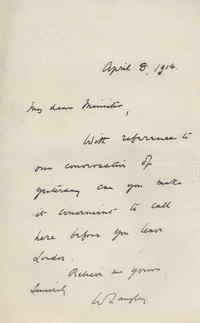 April 8, 1914.
My dear Minister,
With reference to
our conversation of
yesterday can you make
it convenient to call
here before you leave
London.
Believe me yours
Sincerely
W Langley